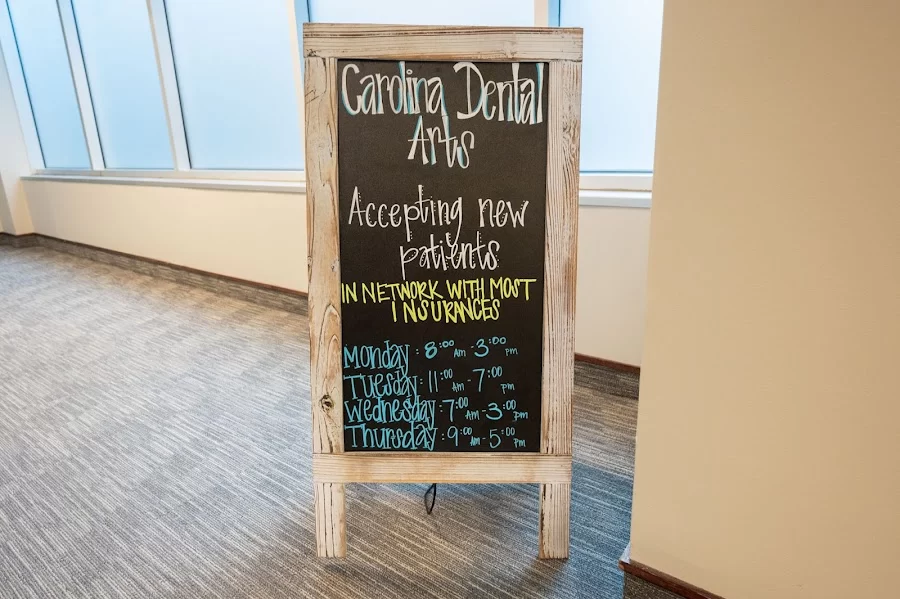 Carolina Dental
Arts
Accepting new
patients
IN NETWORK WITH MOST
INSURANCES
Monday: 8:00 Am - 3:00 pm
Tuesday: 11:00 Am - 7:00 pm
Wednesday: 7:00 Am - 3:00 pm
Thursday: 9:00 Am - 5:00 pm